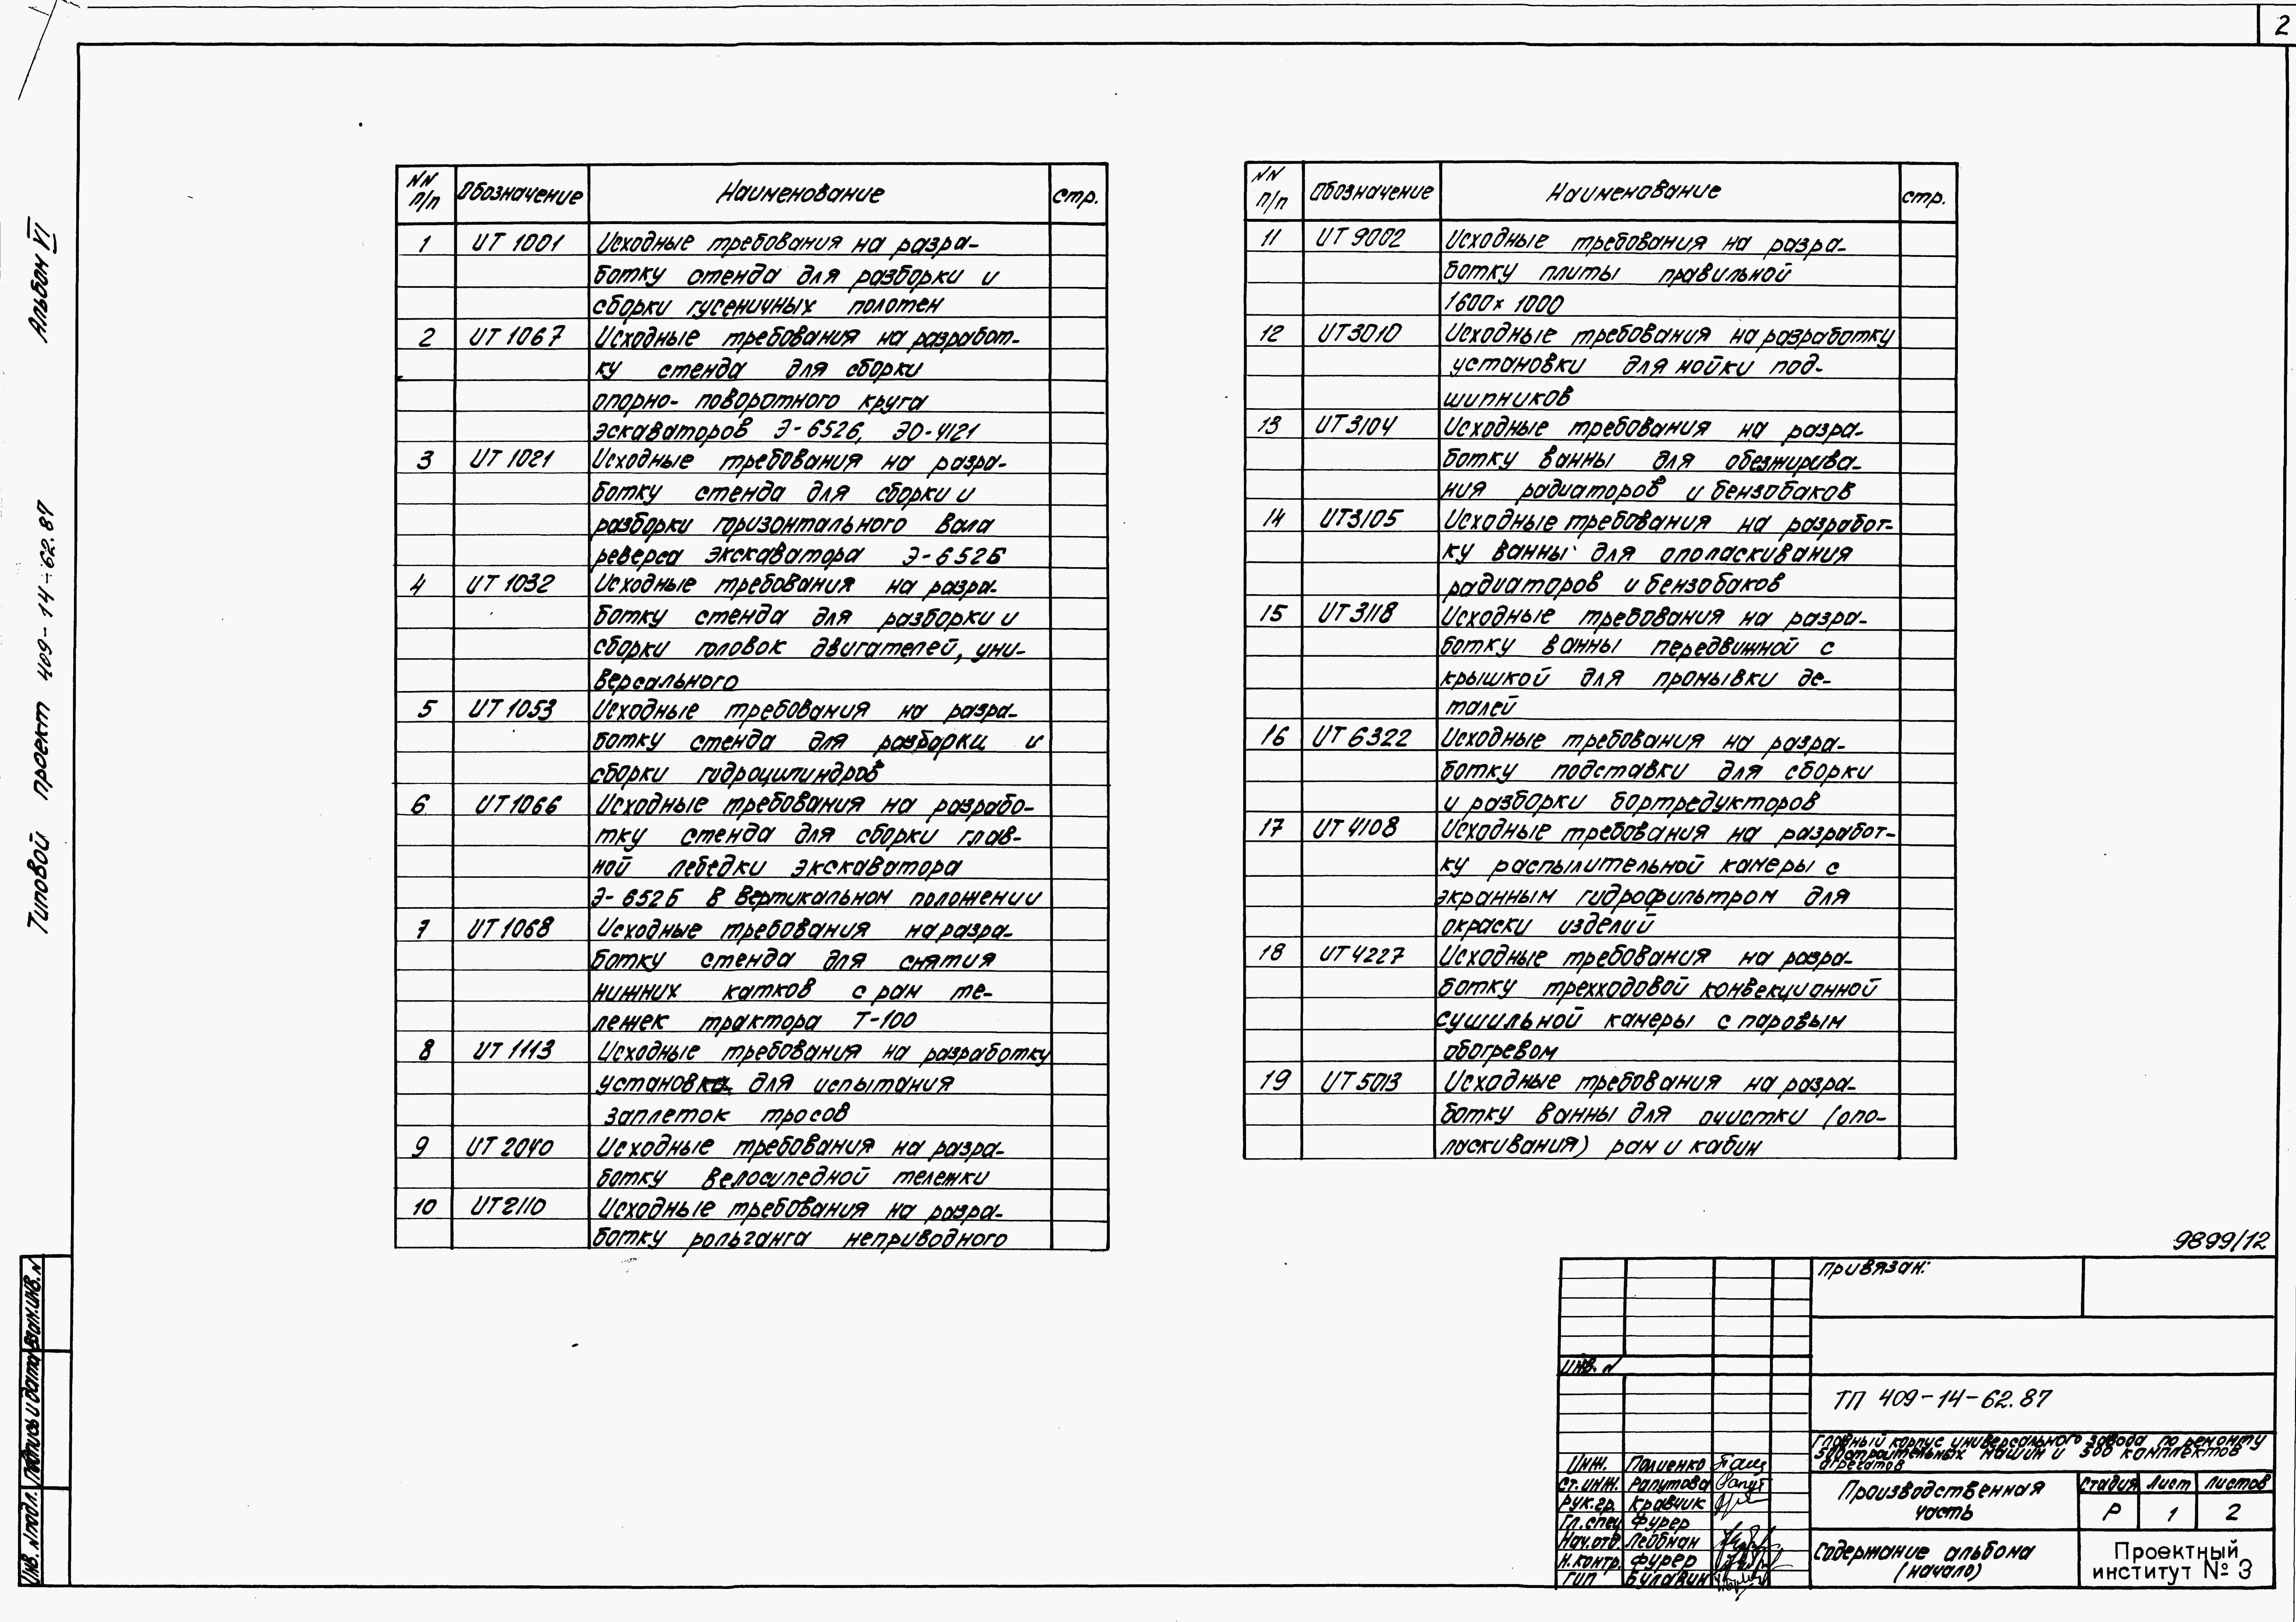 2
Альбом VI
Типовой проект 409-14-62.87
NN п/п Обозначение Наименование стр.
1 ИТ 1001 Исходные требования на разра-
ботку стенда для разборки и
сборки гусеничных полотен
2 ИТ 1067 Исходные требования на разработ-
ку стенда для сборки
опорно-поворотного круга
экскаваторов Э-652Б, ЭО-4121
3 ИТ 1021 Исходные требования на разра-
ботку стенда для сборки и
разборки горизонтального вала
реверса экскаватора Э-652Б
4 ИТ 1032 Исходные требования на разра-
ботку стенда для разборки и
сборки головок двигателей, уни-
версального
5 ИТ 1053 Исходные требования на разра-
ботку стенда для разборки и
сборки гидроцилиндров
6 ИТ 1066 Исходные требования на разрабо-
тку стенда для сборки глав-
ной лебедки экскаватора
Э-652Б в вертикальном положении
7 ИТ 1068 Исходные требования на разра-
ботку стенда для снятия
нижних катков с рам те-
лежек трактора Т-100
8 ИТ 1113 Исходные требования на разработку
установка для испытания
заплеток тросов
9 ИТ 2040 Исходные требования на разра-
ботку велосипедной тележки
10 ИТ 2110 Исходные требования на разра-
ботку рольганга неприводного
NN п/п Обозначение Наименование стр.
11 ИТ 9002 Исходные требования на разра-
ботку плиты правильной
1600х1000
12 ИТ3010 Исходные требования на разработку
установки для мойки под-
шипников
13 ИТ3104 Исходные требования на разра-
ботку ванны для обезжирива-
ния радиаторов и бензобаков
14 ИТ3105 Исходные требования на разработ-
ку ванны для ополаскивания
радиаторов и бензобаков
15 ИТ 3118 Исходные требования на разра-
ботку ванны передвижной с
крышкой для промывки де-
талей
16 ИТ 6322 Исходные требования на разра-
ботку подставки для сборки
и разборки бортредукторов
17 ИТ 4108 Исходные требования на разработ-
ку распылительной камеры с
экранным гидрофильтром для
окраски изделий
18 ИТ 4227 Исходные требования на разра-
ботку трехходовой конвекционной
сушильной камеры с паровым
обогревом
19 ИТ 5013 Исходные требования на разра-
ботку ванны для очистки (опо-
ласкивания) рам и кабин
9899/12
Привязан:
Инв. N
ТП 409-14-62.87
Главный корпус универсального завода по ремонту
500 строительных машин и 500 комплектов
агрегатов
Инж. Полиенко
Ст. инж. Рапутова
Рук. гр. Кравчик
Гл. спец Фурер
Нач. отд. Лейбман
Н. контр. Фурер
ГИП Булавин
Производственная
часть
Стадия Лист Листов
Р 1 2
Содержание альбома
(начало)
Проектный
институт № 3
Инв. N подл. Подпись и дата Взам. инв. N